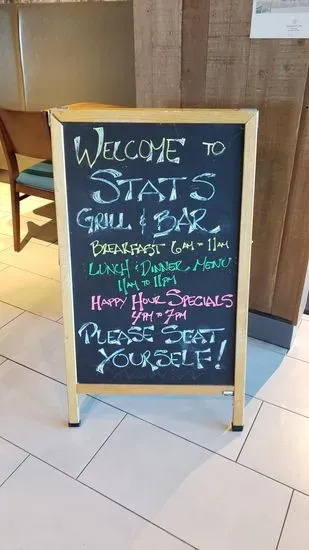 WELCOME TO
STATS
GRILL & BAR
BREAKFAST 6AM TO 11AM
LUNCH & DINNER MENU
11AM TO 11PM
HAPPY HOUR SPECIALS
4PM TO 7PM
PLEASE SEAT
YOURSELF!